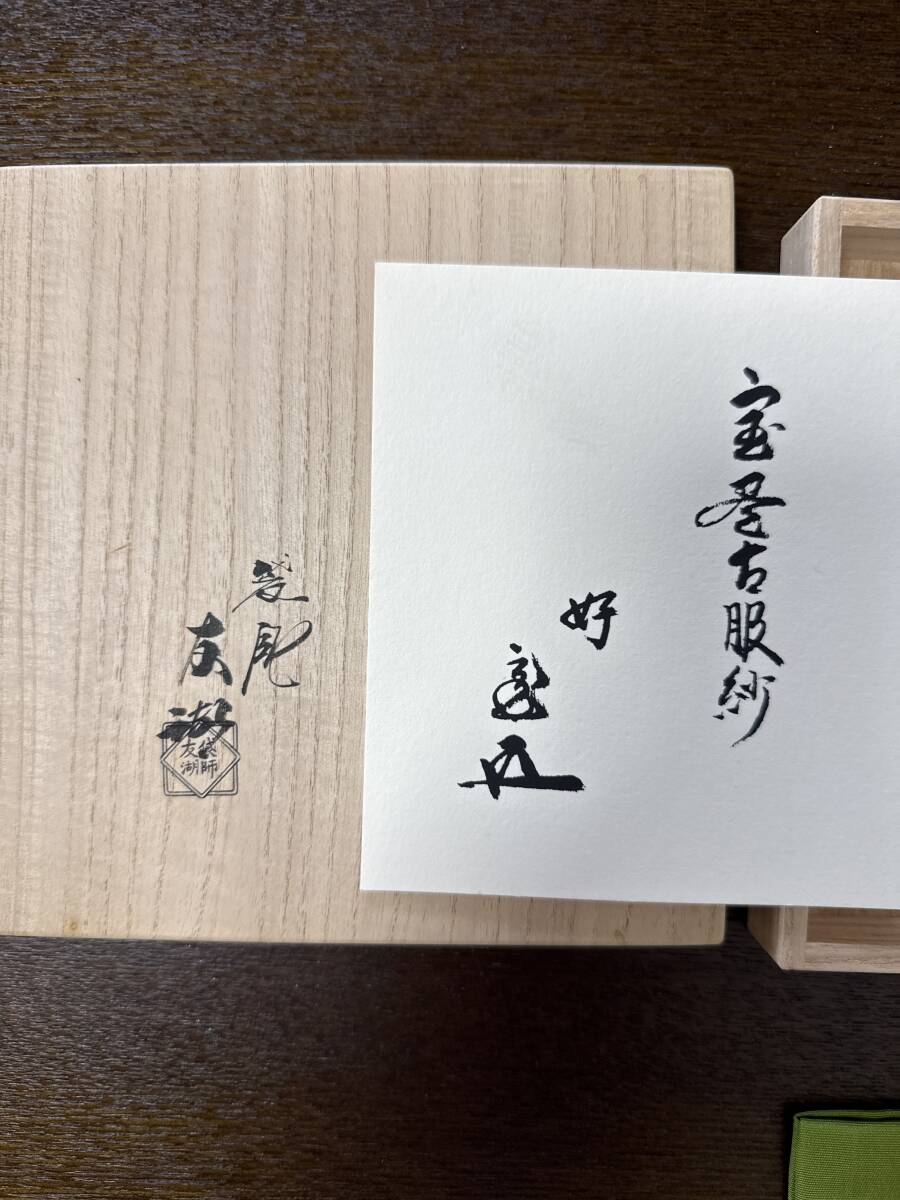 宝尽古服紗
好
袋師
友湖
袋師
友湖